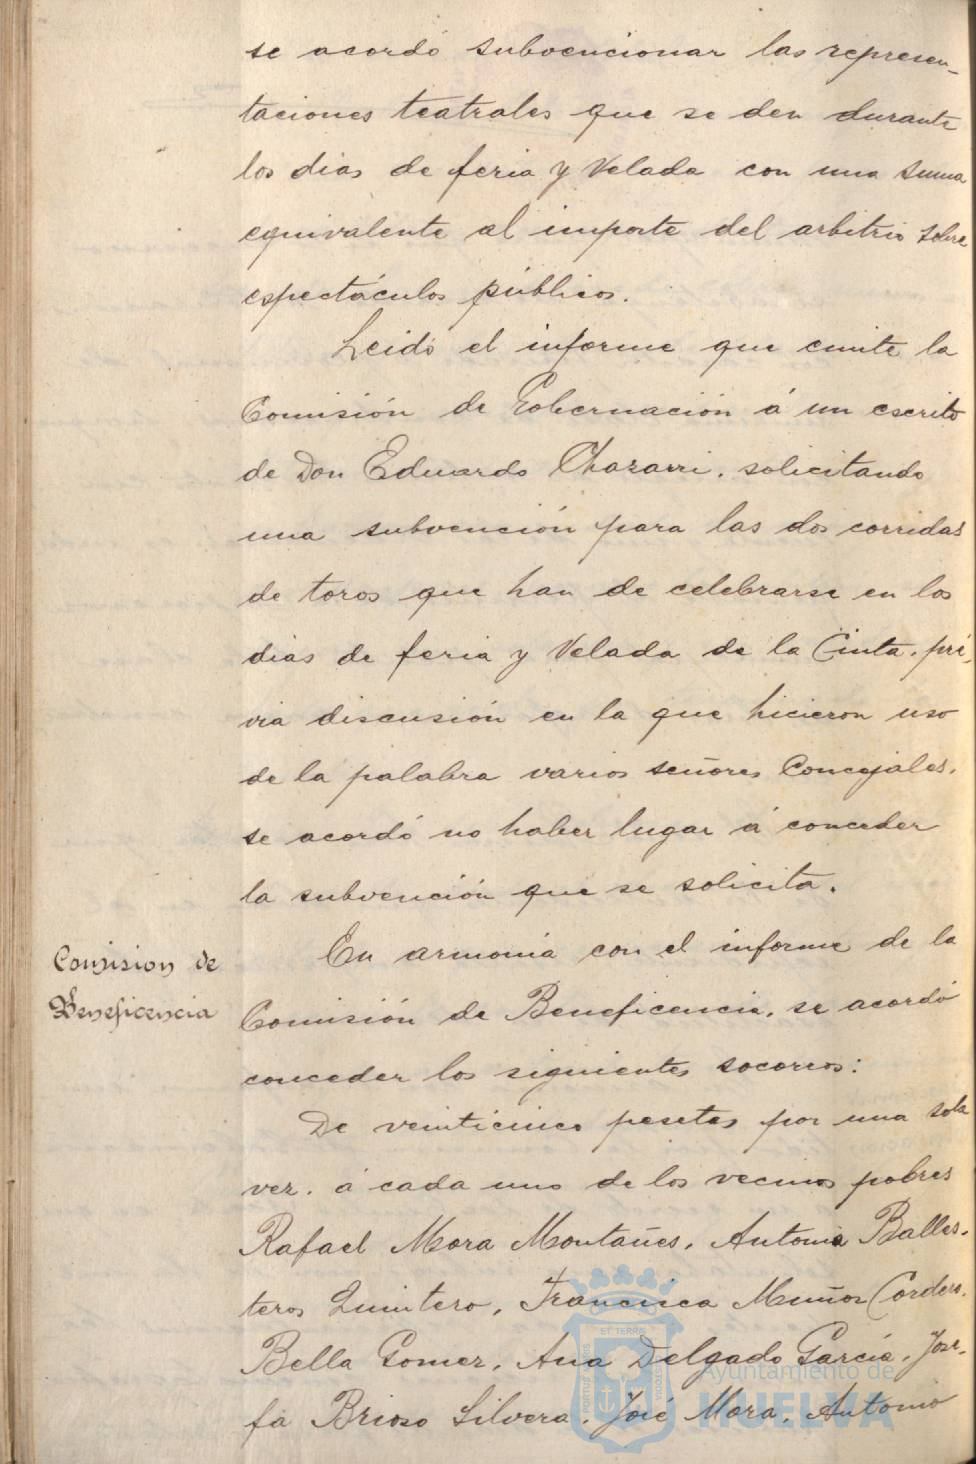 se acordó subvencionar las represen-
taciones teatrales que se den durante
los dias de feria y Velada con una suma
equivalente al importe del arbitrio sobre
espectáculos públicos.
Leido el informe que emite la
Comisión de Gobernación á un escrito
de Don Eduardo Chazarri, solicitando
una subvención para las dos corridas
de toros que han de celebrarse en los
dias de feria y Velada de la Cinta, pré-
via discusión en la que hicieron uso
de la palabra varios señores Concejales,
se acordó no haber lugar á conceder
la subvención que se solicita.
Comision de
Beneficencia
En armonia con el informe de la
Comisión de Beneficencia, se acordó
conceder los siguientes socorros:
De veinticinco pesetas por una sola
vez, á cada uno de los vecinos pobres
Rafael Mora Montañes, Antonia Balles-
teros Quintero, Francisca Muñoz Cordero,
Bella Gomez, Ana Delgado García, Jose-
fa Brioso Silvera, José Mora, Antonio
Ayuntamiento de
HUELVA